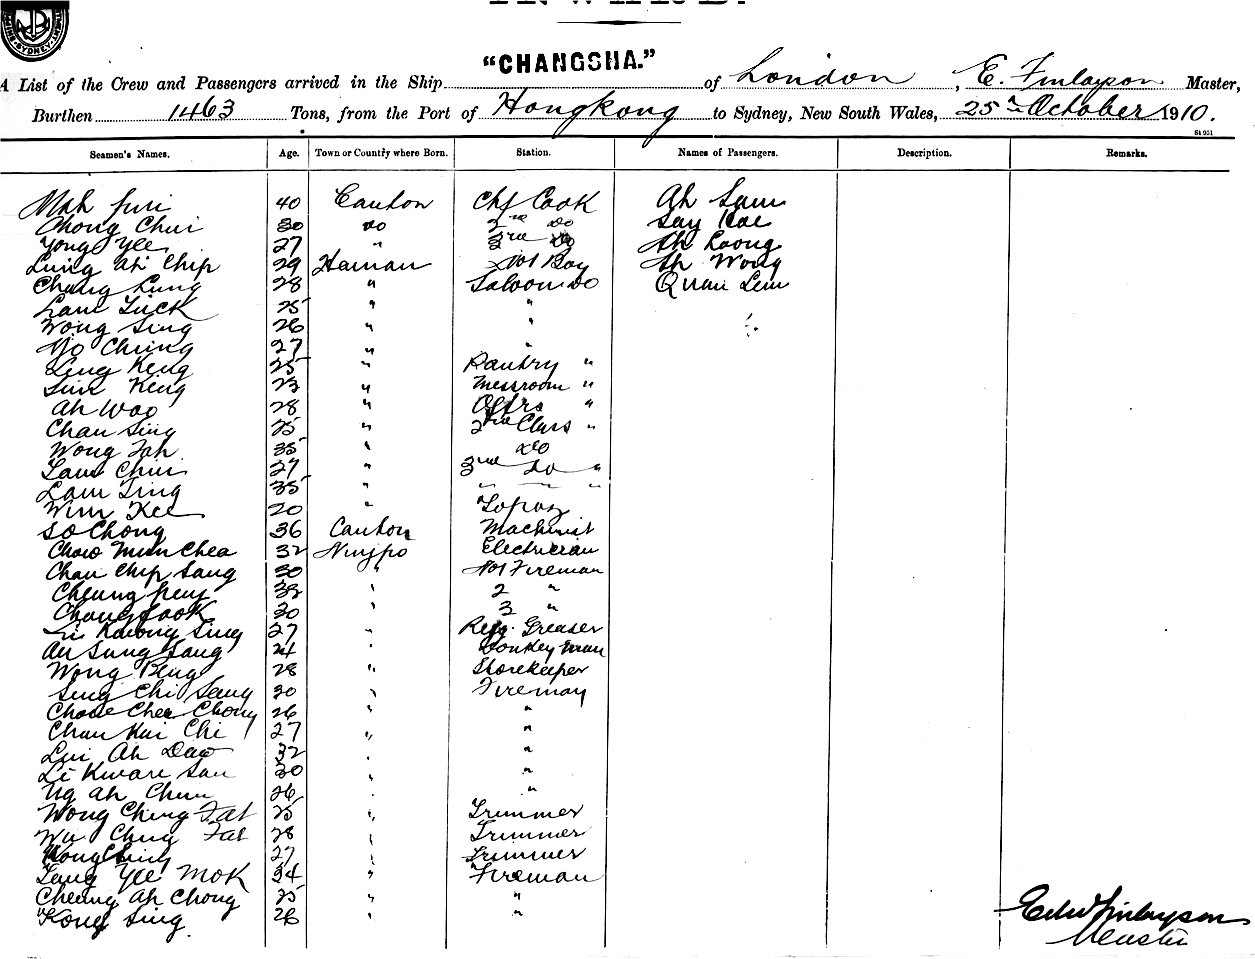 SYDNEY
"CHANGSHA."
A List of the Crew and Passengers arrived in the Ship of London, E. Finlayson Master,
Burthen 1463 Tons, from the Port of Hongkong to Sydney, New South Wales, 25th October 1910.
St 951
Seamen's Names. Age. Town or Country where Born. Station. Names of Passengers. Description. Remarks.
Mah 40 Canton Chf Cook Ah Sam
Chong Chui 30 do 2nd do Say
Yong Yee 27 " 3rd do Ah Loong
Lung Ah Chip 29 Hainan No1 Boy Ah Wong
Chang Lung 28 " Saloon Do Quan Lem
Lam Tuck 25 " "
Wong Sing 26 " "
Wo Ching 27 " "
Ling King 25 " Pantry "
Lim King 23 " Messroom "
Ah Woo 28 " Offrs "
Chan Sing 25 " 2nd Class "
Wong Fah 35 " do
Lam Chin 27 " 3rd do "
Lam Ting 35 " " " " "
Wim Kee 20 " Topaz
So Chong 36 Canton Machinist
Chow Mun Chea 32 Ningpo Electrician
Chan Chip Sang 30 " No1 Fireman
Cheung 38 " 2 "
Chong Fook 30 " 3 "
Li Kwong Sing 27 " Refg. Greaser
Au Sung Sang 24 " Donkeyman
Wong Peng 28 " Storekeeper
Sing Chi Sang 30 " Fireman
Chee Chong 26 " "
Chan Kui Chi 27 " "
Lui Ah Dao 32 " "
Li Kwan San 30 " "
Ng Ah Chun 26 " "
Wong Ching Fat 25 " Trimmer
Wu Ching Fat 28 " Trimmer
27 " Trimmer
Tang Yee Mok 34 " Fireman
Cheung Ah Chong 25 " "
Kong Sing 26 " "
Edw Finlayson
Master